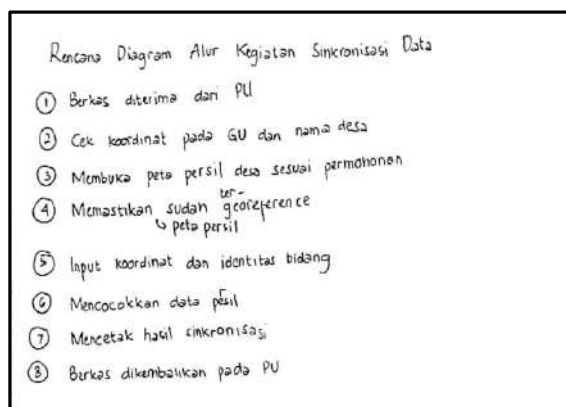 Rencana Diagram Alur Kegiatan Sinkronisasi Data
1 Berkas diterima dari PU
2 Cek koordinat pada GU dan nama desa
3 Membuka peta persil desa sesuai permohonan
4 Memastikan sudah ter-georeference
↳ peta persil
5 Input koordinat dan identitas bidang
6 Mencocokkan data persil
7 Mencetak hasil sinkronisasi
8 Berkas dikembalikan pada PU